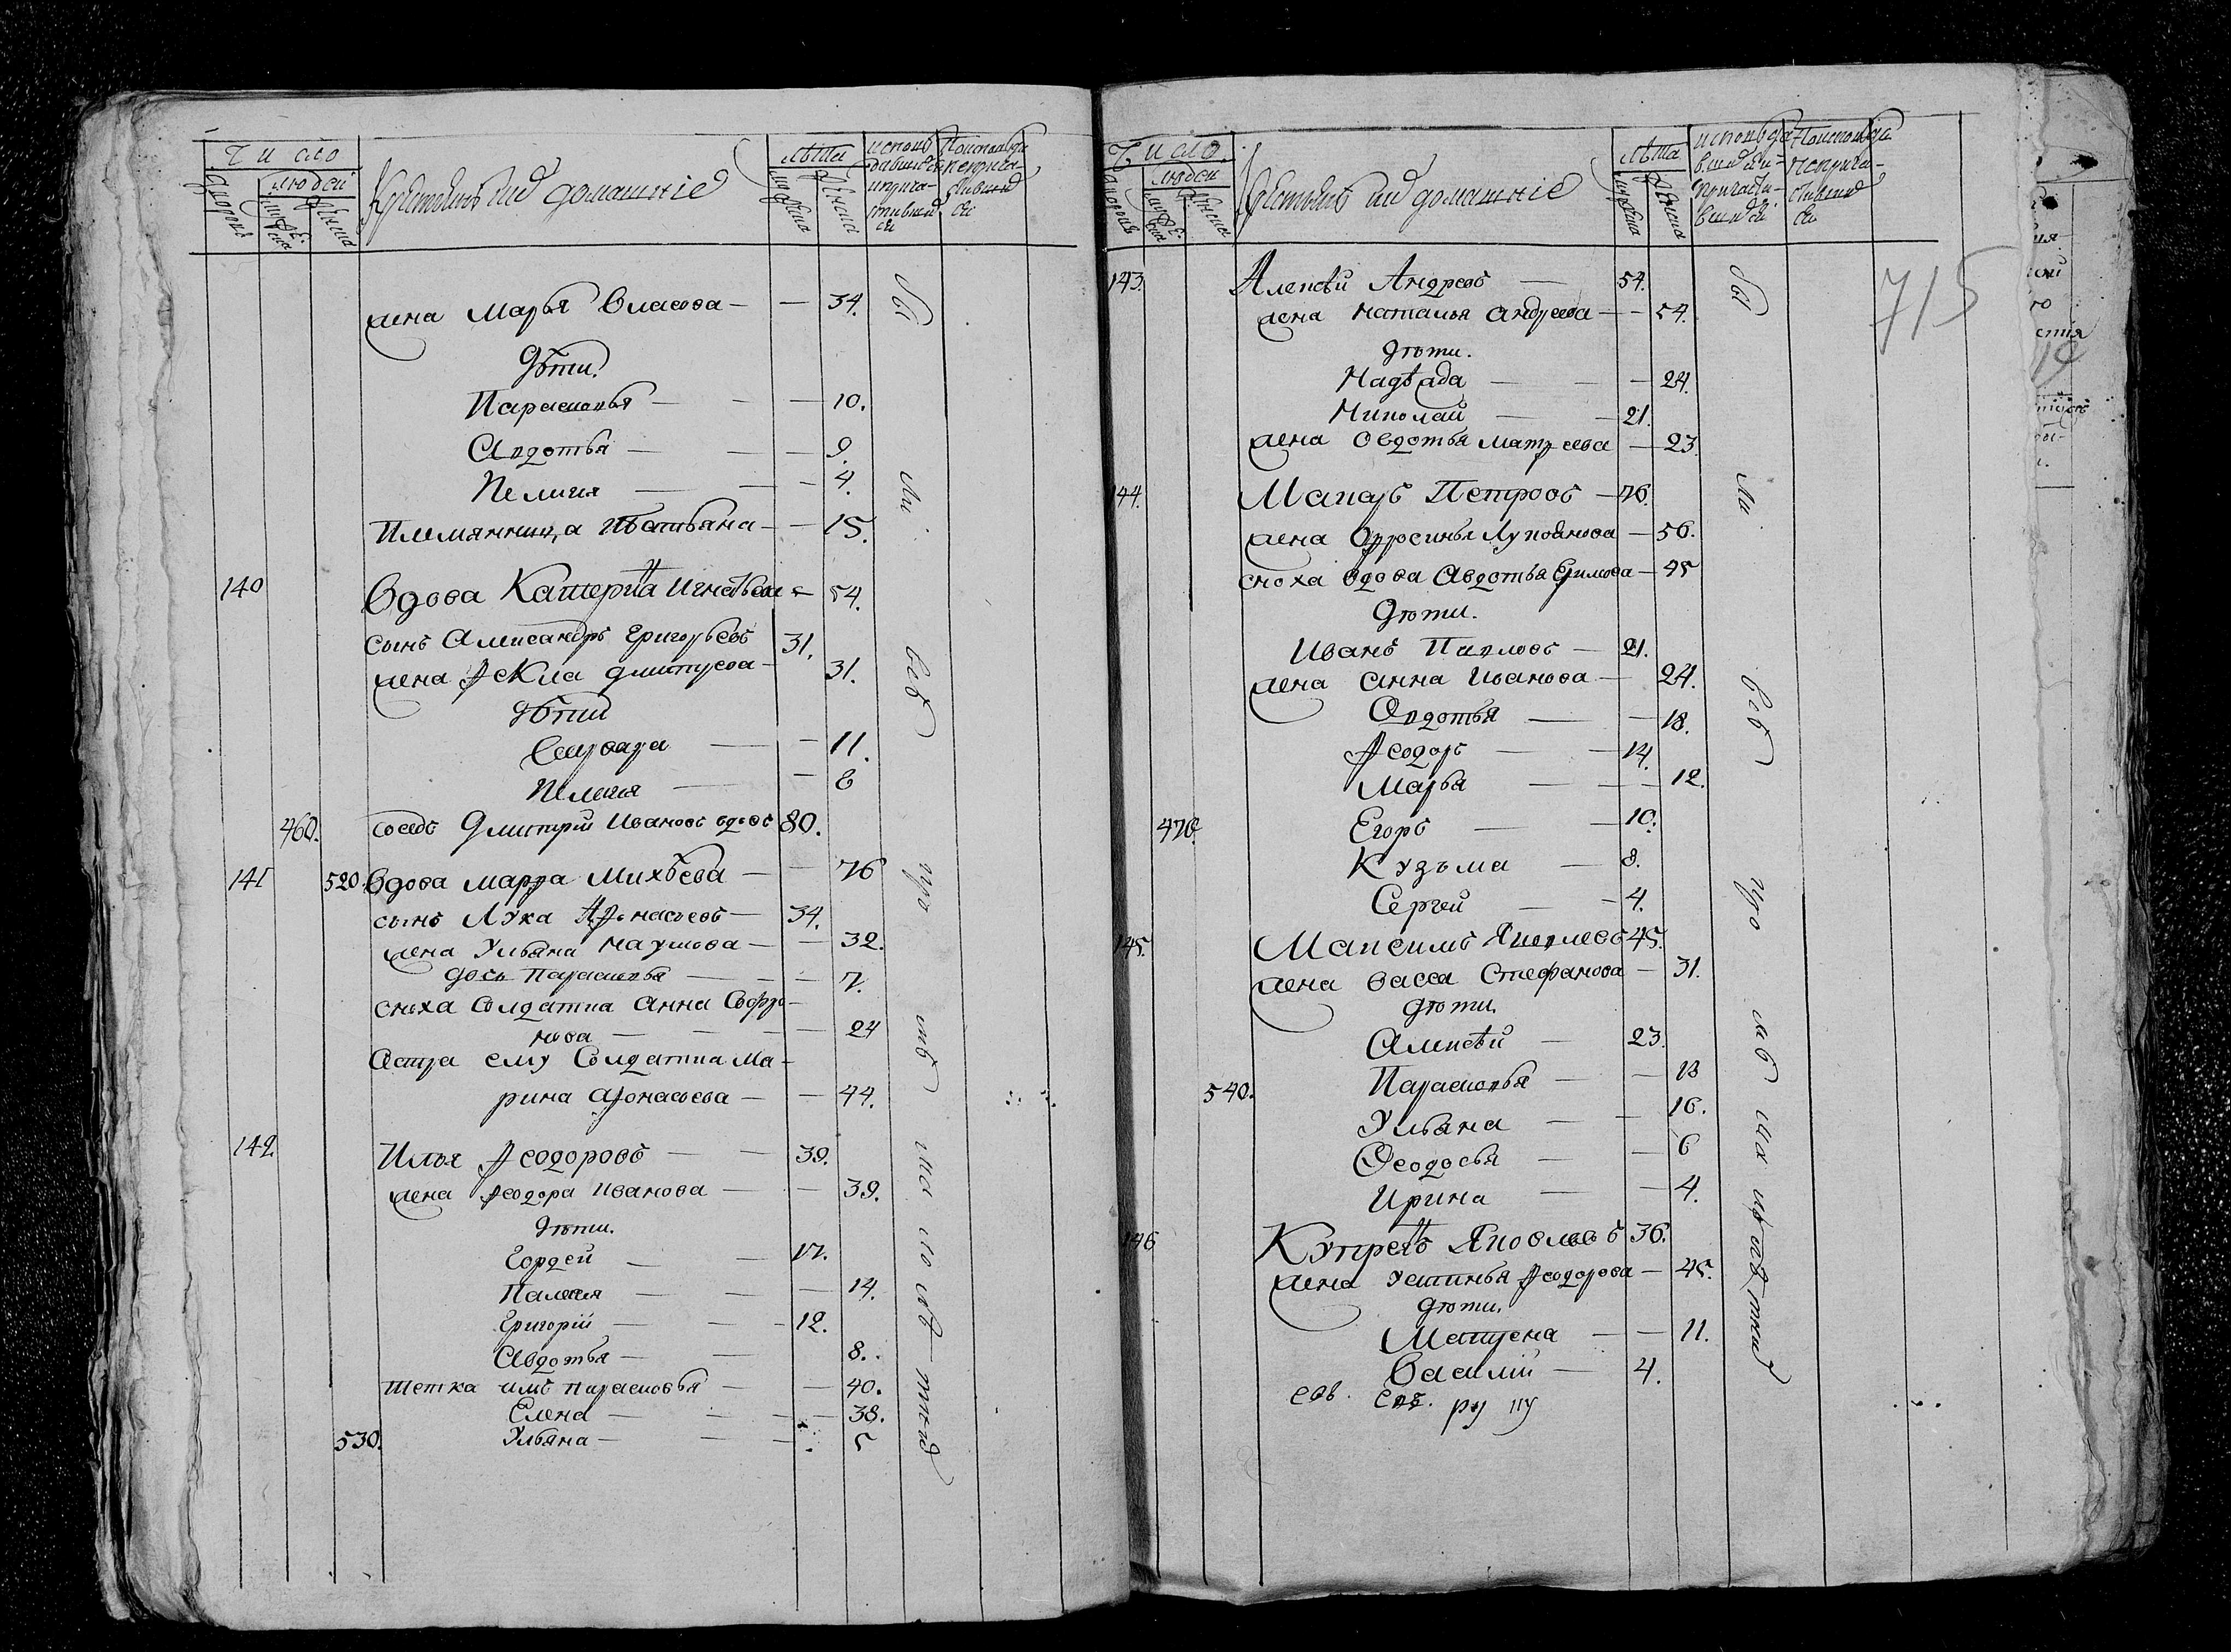 Число
людей
дворовъ
мужеска
женска
Крестьянъ ихъ домашніе
лѣта
мужеска
женска
исповѣ
давшіеся
и прича-
стившие
ся
Исповѣда
непрıча-
стившие
ся
жена Марья Власова — — 34.
Дѣти.
Парасковья — 10.
Авдотья — 9.
Пелагея — 4.
Племянница Татьяна — 15.
140 Вдова Катерина Игнатьева — 54.
сынъ Александръ Григорьевъ 31.
жена Фекла Дмитрева — 31.
дѣти
Варвара — 11.
Пелагея — 8
460. соседъ Дмитрій Ивановъ вдовъ 80.
141 520. Вдова Марфа Михѣева — 76
сынъ Лука Афонасьевъ — 34.
жена Ульяна Наумова — 32.
дочь Парасковья — 7.
сноха Солдатка Анна Софро-
нова — 24
Сестра ему Солдатка Ма-
рина Афонасьева — 44.
142. Илья Ѳеодоровъ — 39.
жена Ѳеодора Иванова — 39.
дѣти.
Гордей — 17.
Палагея — 14.
Григорій — 12.
Авдотья — 8.
тетка имъ Парасковья — 40.
Елена — 38.
530. Ульяна — 5
бы
ли
всѣ
Число
людей
дворовъ
мужеска
женска
Крестьянъ ихъ домашніе
лѣта
мужеска
женска
исповѣда
вшіеся и
причасти-
вшиеся
Исповѣда
непрıча-
стившие
ся
715
143. Алексѣй Андреевъ — 54.
жена Наталья Андреева — 54.
дѣти.
Надѣжда — 24.
Николай — 21.
жена Овдотья Матреева — 23.
144. Макаръ Петровъ — 76.
жена Офросинья Лукоянова — 56.
сноха вдова Авдотья Ефимова — 45
Дѣти.
Иванъ Павловъ — 21.
жена Анна Иванова — 24.
Овдотья — 18.
Ѳеодоръ — 14.
Марья — 12.
470. Егоръ — 10.
Кузьма — 8.
Сергей — 4.
145. Максимъ Яковлевъ 45.
жена Васса Стефанова — 31.
дѣти.
Алексѣй — 23.
540. Парасковья — 18
Ульяна — 16.
Ѳеодосья — 6
Ирина — 4.
146 Купреянъ Яковлевъ 36.
жена Устинья Ѳеодорова — 45.
дѣти.
Матрена — 11.
Василій — 4.
бы
ли
всѣ